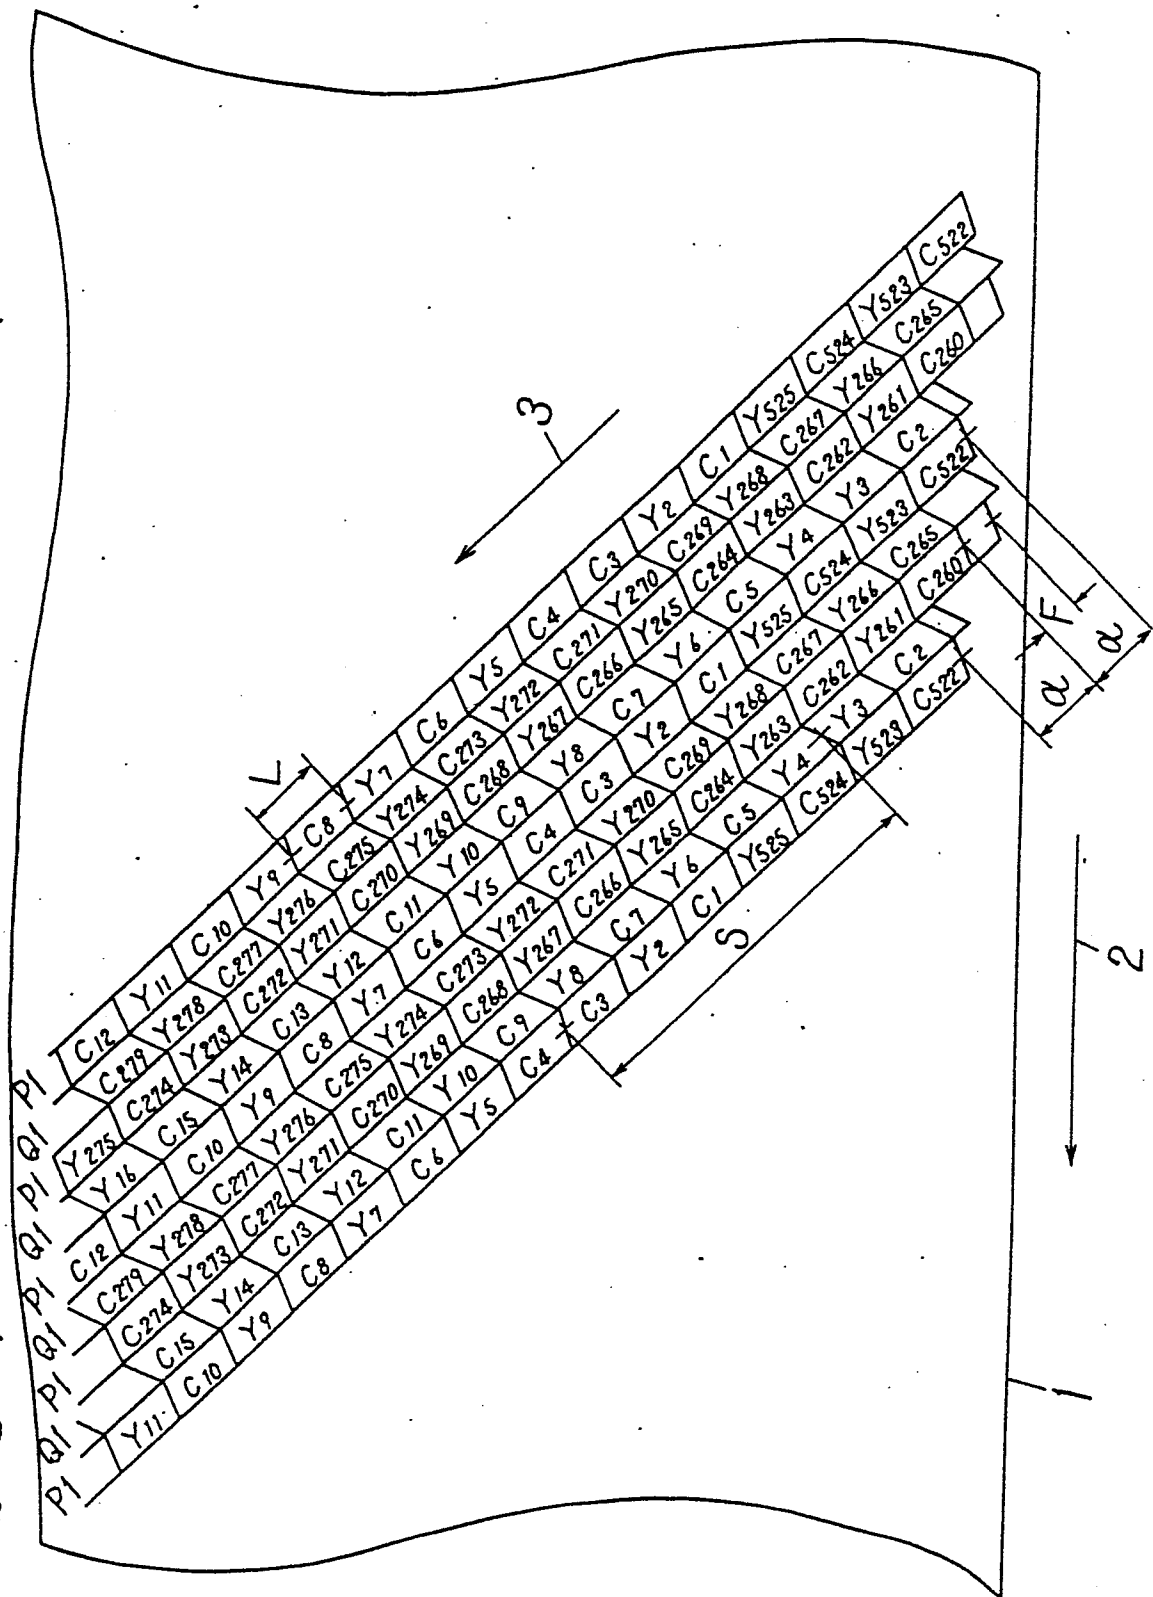 P1 C12 Y11 C10 Y9 C8 Y7 C6 Y5 C4 C3 Y2 C1 Y525 C524 Y523 C522
Q1 C279 Y278 C277 Y276 C275 Y274 C273 Y272 C271 Y270 C269 Y268 C267 Y266 C265
P1 Y275 C274 Y273 C272 Y271 C270 Y269 C268 Y267 C266 Y265 C264 Y263 C262 Y261 C260
Q1 Y16 C15 Y14 C13 Y12 C11 Y10 C9 Y8 C7 Y6 C5 Y4 Y3 C2
P1 C12 Y11 C10 Y9 C8 Y7 C6 Y5 C4 C3 Y2 C1 Y525 C524 Y523 C522
Q1 C279 Y278 C277 Y276 C275 Y274 C273 Y272 C271 Y270 C269 Y268 C267 Y266 C265
P1 C274 Y273 C272 Y271 C270 Y269 C268 Y267 C266 Y265 C264 Y263 C262 Y261 C260
Q1 C15 Y14 C13 Y12 C11 Y10 C9 Y8 C7 Y6 C5 Y4 Y3 C2
P1 Y11 C10 Y9 C8 Y7 C6 Y5 C4 C3 Y2 C1 Y525 C524 Y523 C522
L
3
S
F
α
α
2
1